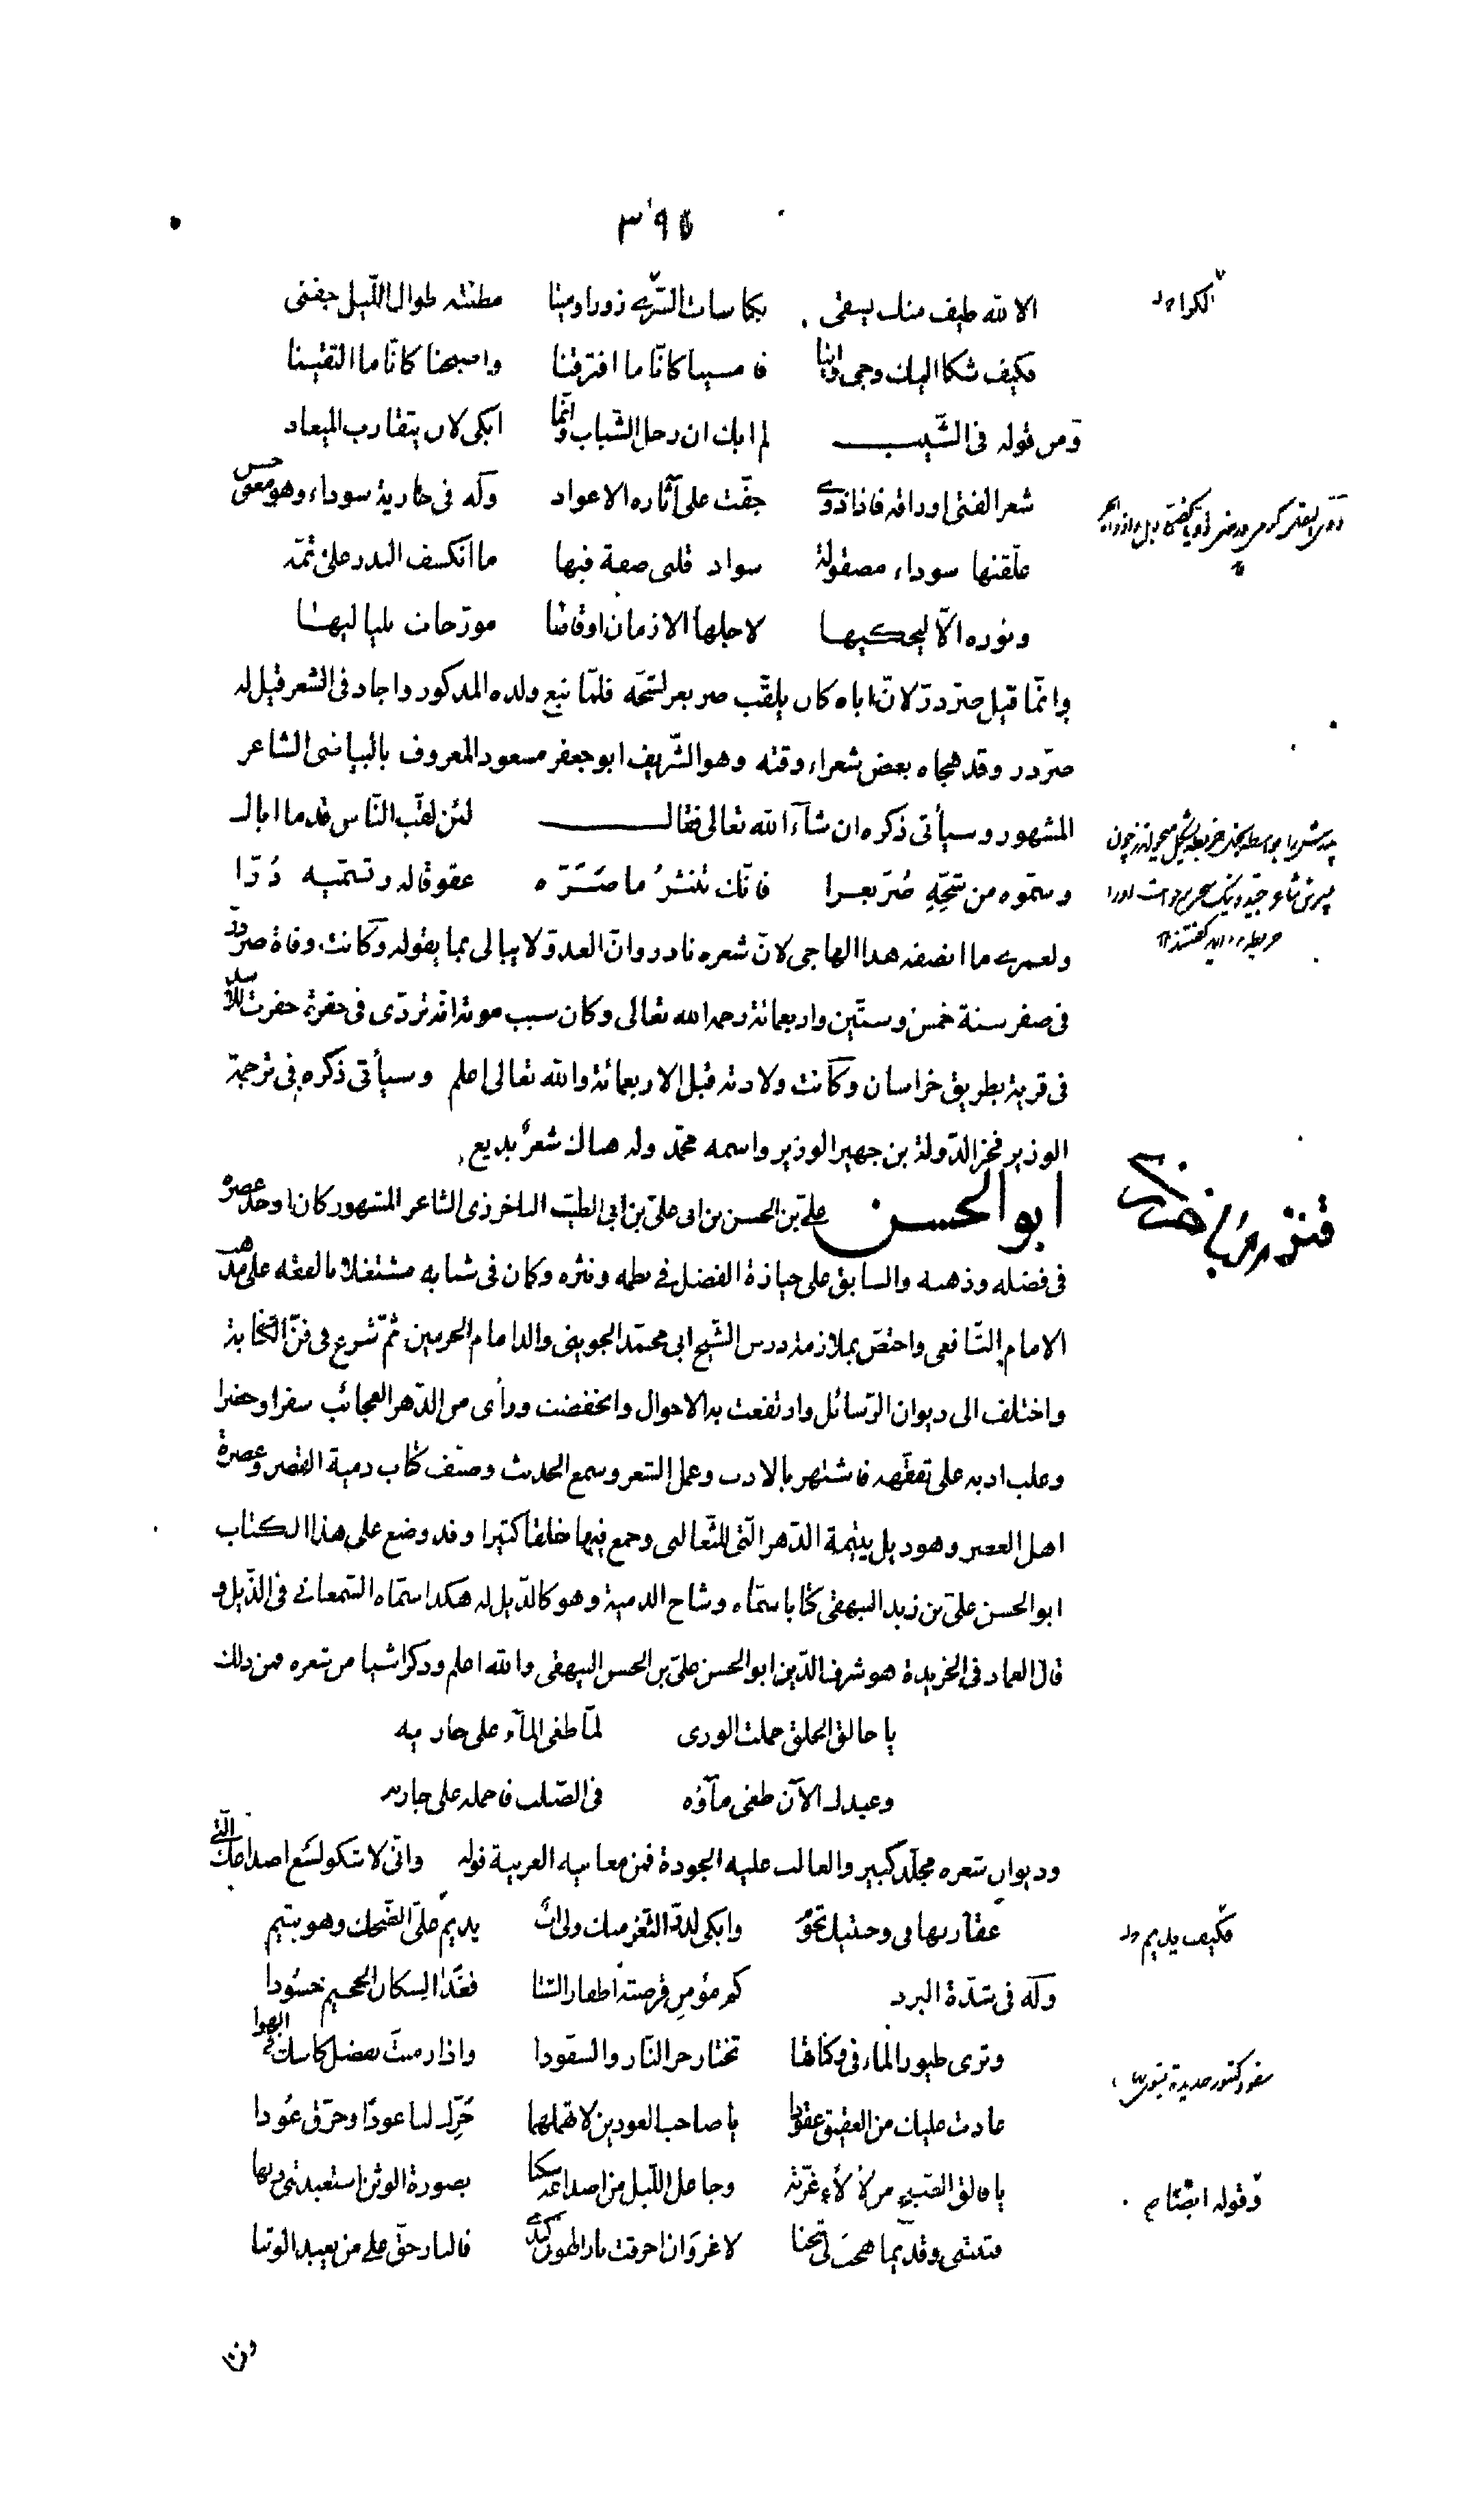 ٣٩٥
الا لله طيف منك يسقى بكاسات السرى زورا ومينا مطيته طوال الليل جفنى
الكرا
فكيف شكا اليك وجى واينا فامسينا كانّا ما افترقنا واصبحنا كانّا ما التقينا
ومن قوله فى الشّيب لم ابك ان رحل الشّباب وانّما ابكى لان يتقارب الميعاد
شعر الفتى اوراقه فاذا ذوى جفّت على آثاره الاعواد وله فى جارية سوداء وهو معنى حسن
علّقتها سوداء مصقولة سواد قلبى صفة فيها ما انكسف البدر على تمّه
ونوره الّا ليحكيها لاجلها الازمان اوقاتنا مورّخات بلياليها
وانّما قيل صرّدرّ لانّ اباه كان يلقّب صربعر لشحّه فلمّا نبع ولده المذكور واجاد فى الشعر قيل له
صرّدر وقد هجاه بعض شعراء وقته وهو الشّريف ابو جعفر مسعود المعروف بالبياضى الشاعر
المشهور وسيأتى ذكره ان شآء الله تعالى فقال لئن لقّب النّاس قدما اباك
وسمّوه من شحّهِ صُرّبعرا فانّك تنثرُ ما صَرّه عقوقا له وتسمّيه دُرّا
ولعمرى ما انصفه هذا الهاجى لانّ شعره نادر وانّ العدوّ لا يبالى بما يقوله وكانت وفاة صرّدرّ
فى صفر سنة خمس وستّين واربعمائة رحمه الله تعالى وكان سبب موته انّه تردّى فى حفرة حفرت للاسد
فى قرية بطريق خراسان وكانت ولادته قبل الاربعمائة والله تعالى اعلم وسيأتى ذكره فى ترجمة
الوزير فخر الدّولة بن جهير الوزير واسمه محمّد وله هناك شعرٌ بديع
ابو الحسن علىّ بن الحسن بن ابى علىّ بن ابى الطيّب الباخرزى الشاعر المشهور كان اوحد عصره
فى فضله وذهنه والسابق على حيازة الفضل فى نظمه ونثره وكان فى شبابه مشتغلا بالفقه على مذهب
الامام الشّافعى واختصّ بملازمة درس الشّيخ ابى محمّد الجوينى والد امام الحرمين ثمّ شرع فى فنّ الكتابة
واختلف الى ديوان الرّسائل وارتفعت به الاحوال وانخفضت ورأى من الدّهر العجائب سفرا وحضرا
وغلب ادبه على تفقّهه فاشتهر بالادب وعمل الشعر وسمع الحديث وصنّف كتاب دمية القصر وعصرة
اهل العصر وهو ذيل يتيمة الدّهر الّتى للثّعالبى وجمع فيها خلقا كثيرا وقد وضع على هذا الكتاب
ابو الحسن علىّ بن زيد البيهقى كتابا سمّاه وشاح الدمية وهو كالذّيل له هكذا سمّاه السّمعانى فى الذّيل و
قال العماد فى الخريدة هو شرف الدّين ابو الحسن علىّ بن الحسن البيهقى والله اعلم وذكر اشيا من شعره فمن ذلك
يا خالق الخلق حملت الورى لمّا طغى المآء على جاريه
وعبدك الآن طغى مآؤه فى الصّلب فاحمله على جاريه
وديوان شعره مجلّد كبير والغالب عليه الجودة فمن معانيه الغريبة قوله وانّى لاشكو لسع اصداغك الّتى
عقاربها فى وجنتيك تحوم وابكى لدرّ الثّغر منك ولى اب يديم علىّ الضّحك وهو يتيم
فكيف يديم
وله فى شدّة البرد كم مؤمن قرصته اظفار الشتا فغدا لسكان الجحيم حسُودا
وترى طيور الماء فى وكناتها تختار حر النّار والسفودا واذا رميت بفضل كاسك فى الهوا
عادت عليك من العقيق عقودا يا صاحب العودين لا تهملهما حَرِّك لنا عودًا وحرّق عُودا
يا فالق الصّبح من لألاء غرّته وجاعل اللّيل من اصداغه سكنا بصورة الوثن استعبدتنى وبها
وقوله ايضا
فتنتنى وقديما هجت لى شجنا لا غرو ان احرقت نار الهوى كبدى فالنار حقّ على من يعبد الوثنا